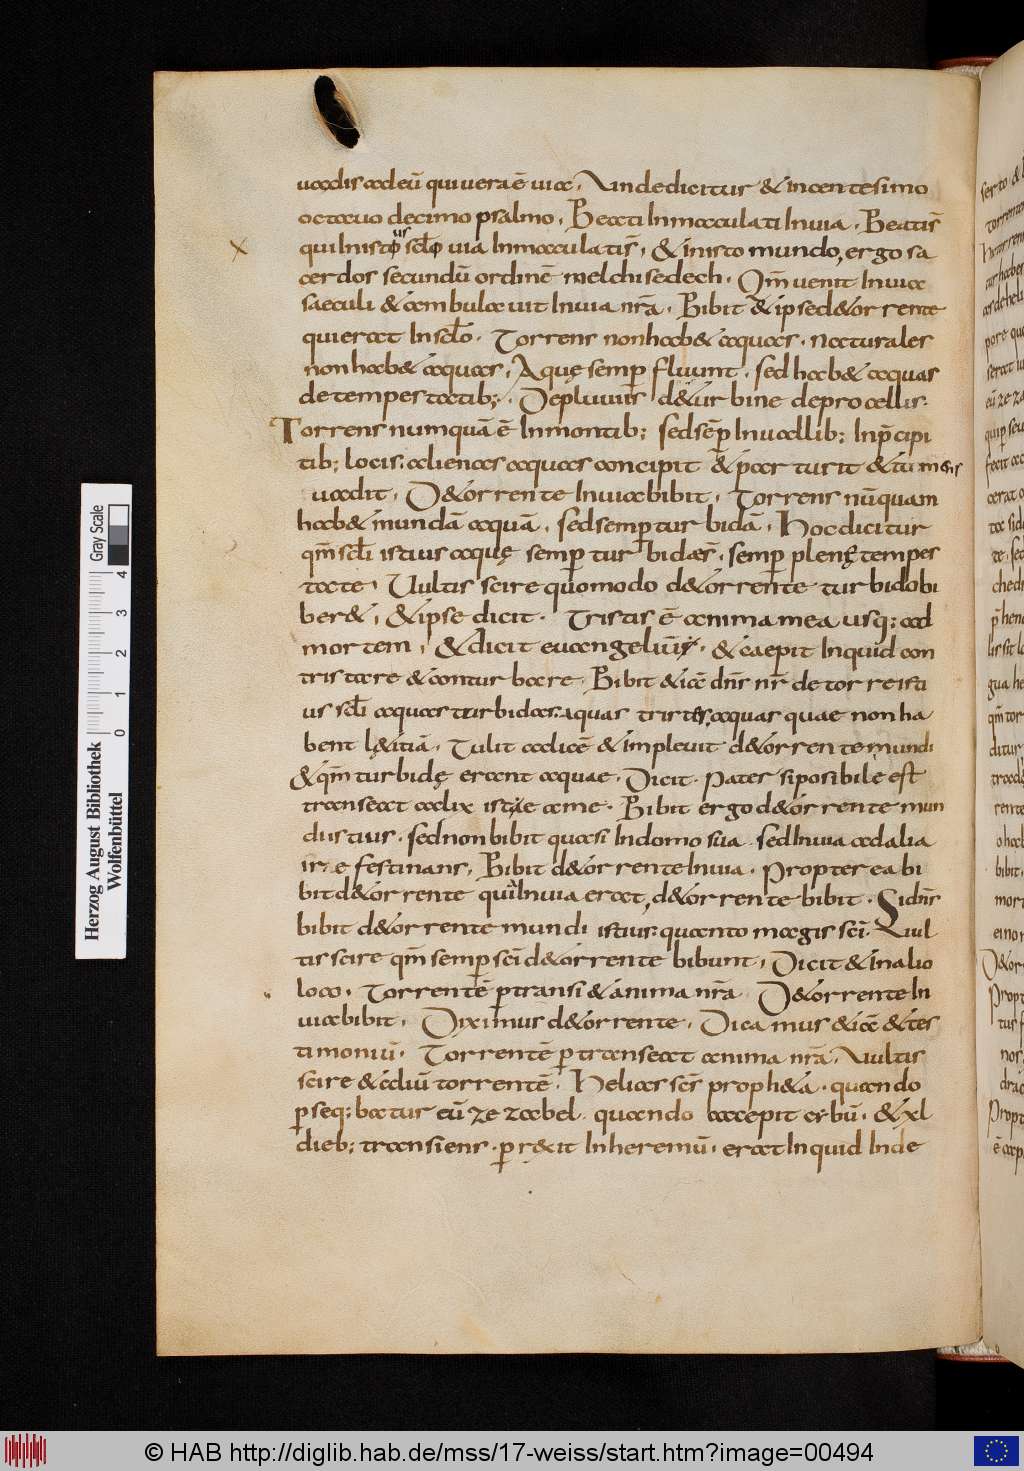 uadis adeū qui uera ē uia. Unde dicitur & in centesimo
octauo decimo psalmo. Beati Inmaculati Inuia. Beatis
qui Inisto us scło uia Inmaculatis. & inisto mundo, ergo sa
cerdos secundū ordinē melchisedech. Qm̄ uenit Inuia
saeculi & ambulauit Inuia nr̄a. Bibit & ipse d& orrente
qui erat Inscło. Torrens non hab& aquas. Naturales
non hab& aquas. Aquę semp̄ fluunt. sed hab& aquas
de tempestatib;. De pluuiis d& urbine de procellis.
Torrens numquā ē Inmontib; sed sēp̄ Inuallib; Inp̄cipi
tib; locis. alienas aquas concipit & parturit & tumens
uadit. D& orrente Inuia bibit. Torrens nūquam
hab& mundā aquā. sed semp̄ turbidā. Hoc dicitur
qm̄ scłi istius aquę semp̄ turbidæ s̄. semp̄ plenę tempes
tate. Uultis scire quomodo d& orrente turbido bi
ber&, & ipse dicit. Tristis ē anima mea usq; ad
mortem, & dicit euangeliū. & caepit Inquid con
tristare & conturbare. Bibit & iā dn̄s nr̄ de torre isti
us scłi aquas turbidas. aquas tristes. aquas quae non ha
bent l&itiā. Tulit calicē & impleuit d& orrente mundi
& qm̄ turbidę erant aquae. Dicit. Pater si posibile est
transeat calix iste a me. Bibit ergo d& orrente mun
di istius. sed non bibit quasi Indomo sua. sed Inuia ad alia
ire festinans. Bibit d& orrente Inuia. Propterea bi
bit d& orrente quia Inuia erat, d& orrente bibit. Si dn̄s
bibit d& orrente mundi istius. quanto magis scī. Uul
tis scire qm̄ semp̄ scī d& orrente bibunt. Dicit & in alio
loco. Torrentē p̄transi& anima nr̄a D& orrente In
uia bibit. Diximus d& orrente. Dicamus & iā & tes
timoniū. Torrentē p̄transeat anima nr̄a. Uultis
scire & aliū torrentē. Helias scs̄ proph&a. quando
p̄seq;batur eū zezabel. quando accepit cibū. & xl
dieb; transiens. p̄rexit Inheremū. erat Inquid Inde
Gray Scale
0 1 2 3 4
Herzog August Bibliothek
Wolfenbüttel
© HAB http://diglib.hab.de/mss/17-weiss/start.htm?image=00494